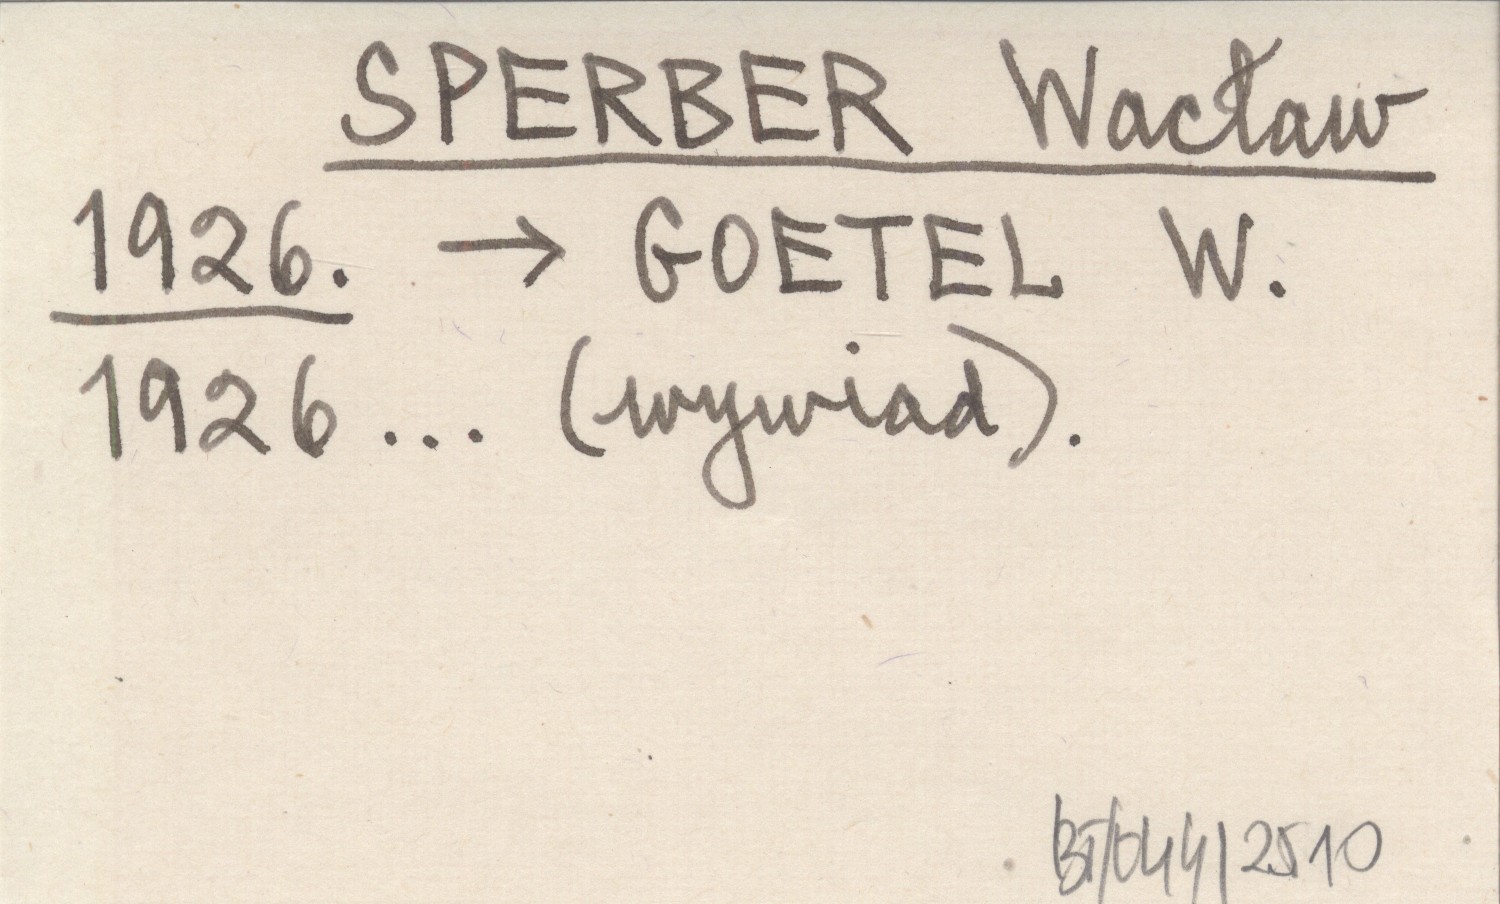 SPERBER Wacław
1926. → GOETEL W.
1926... (wywiad).
BT/044/2510